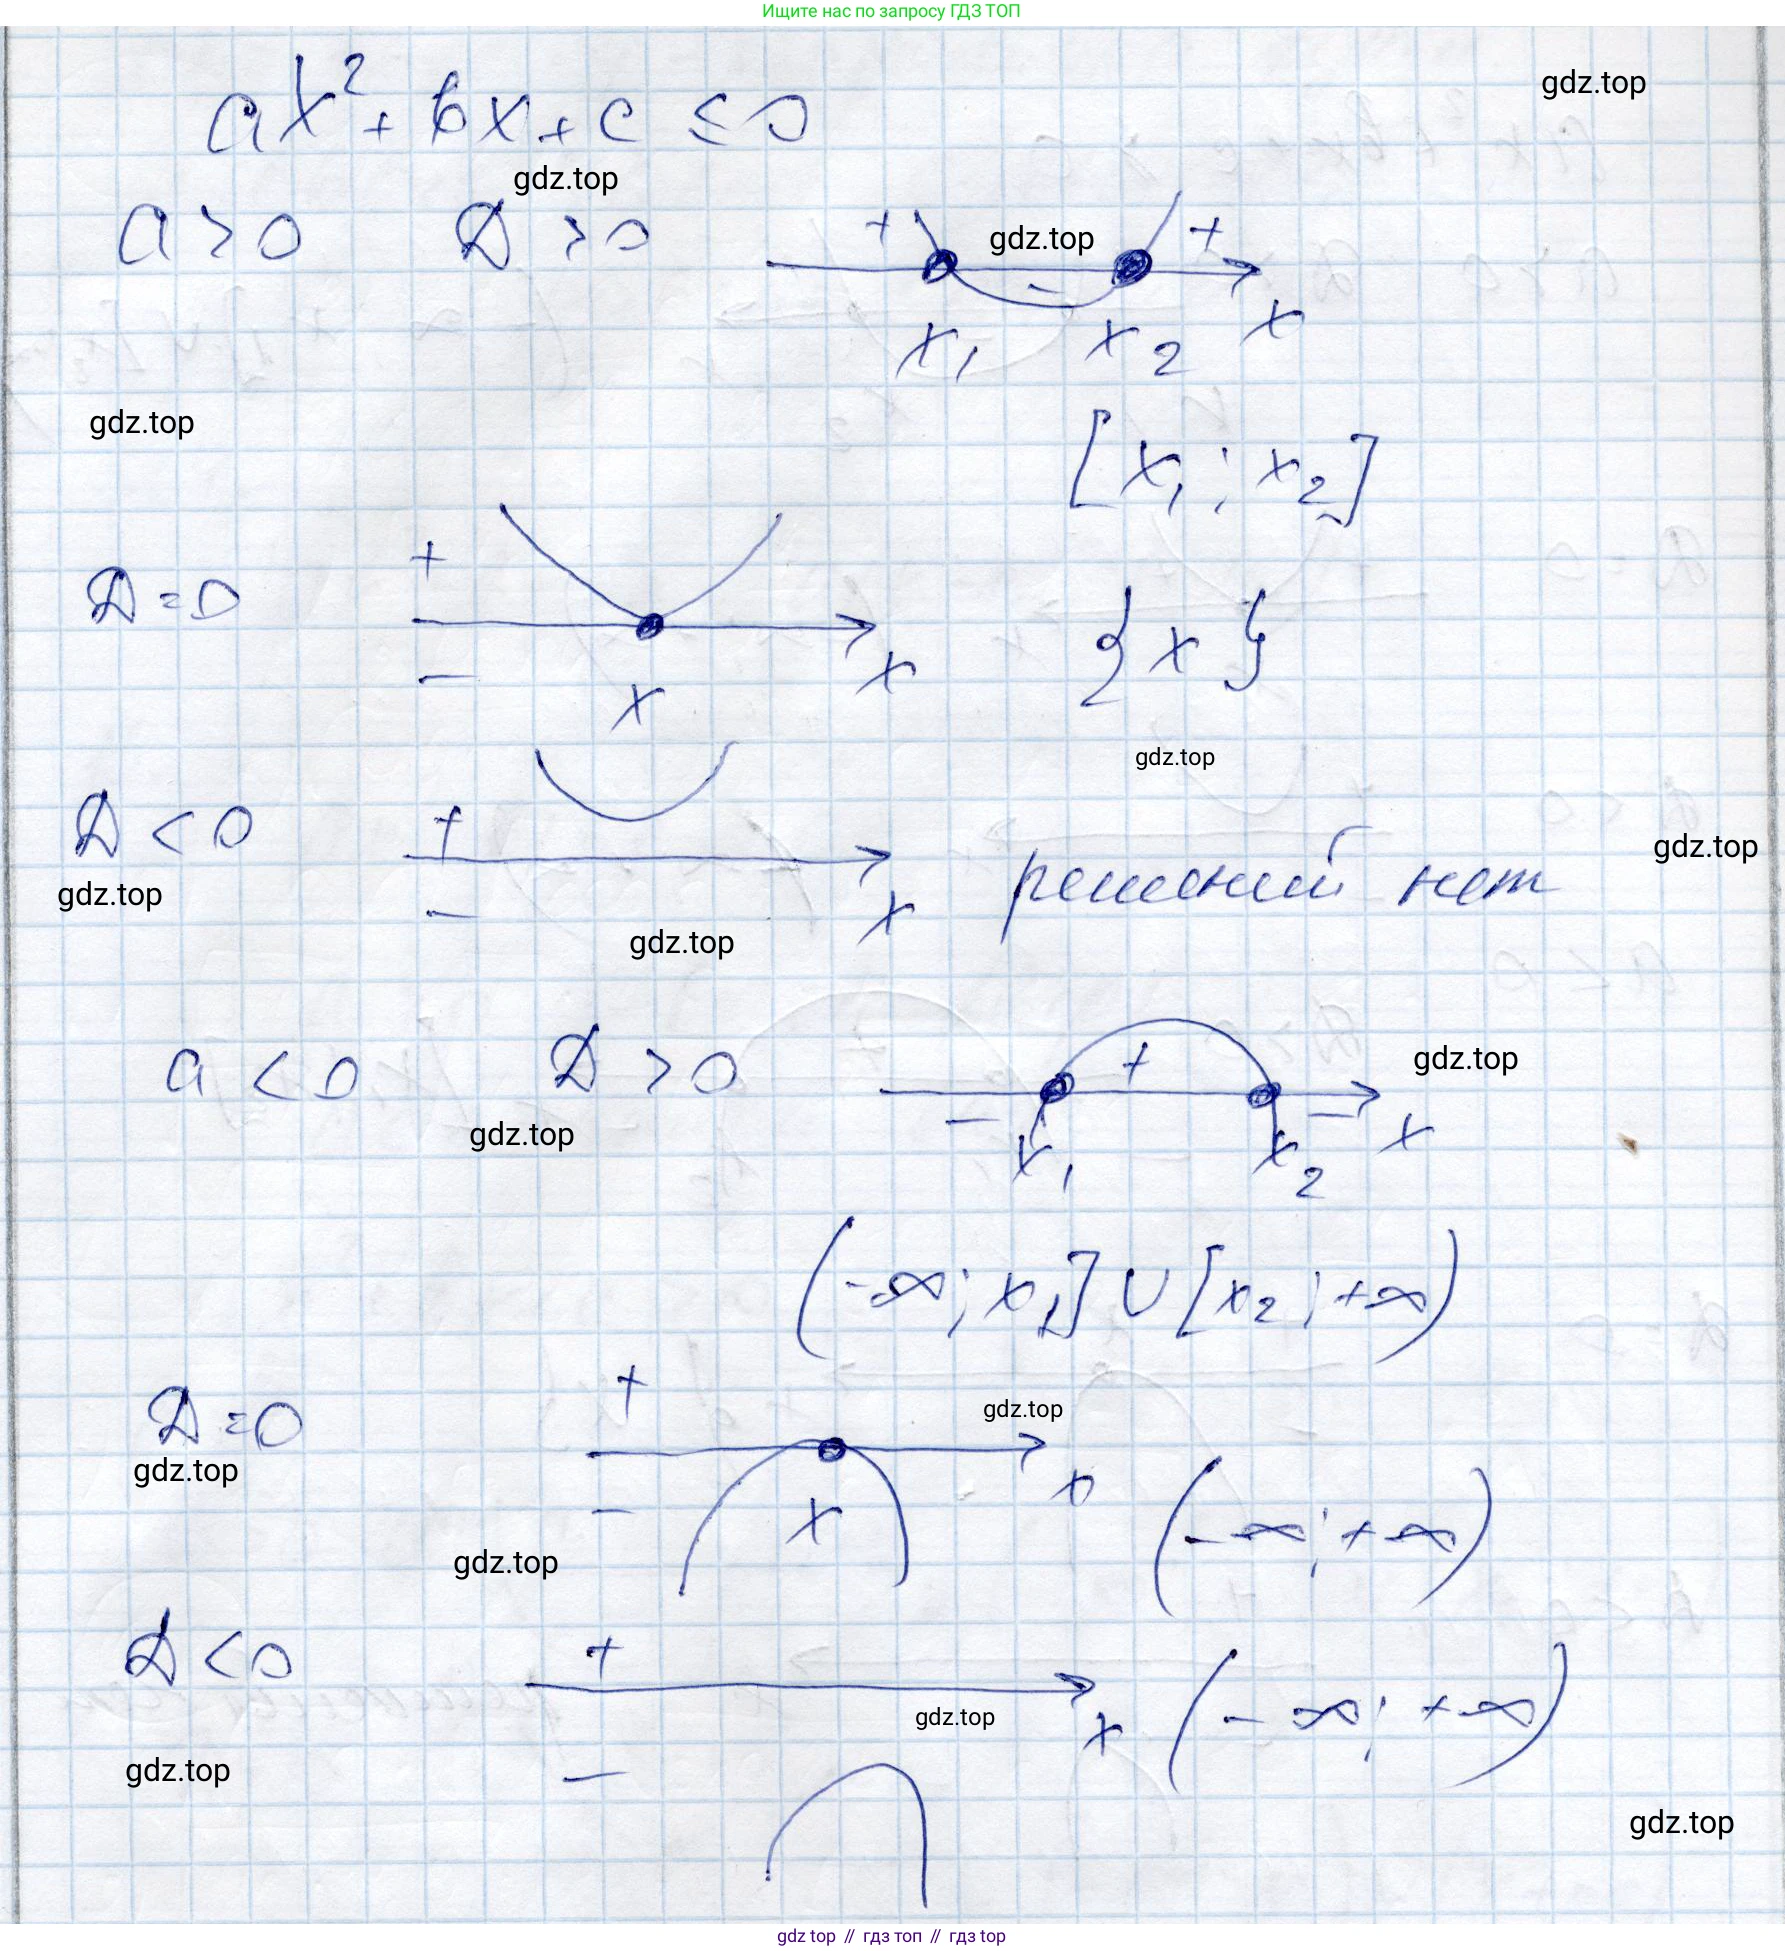 Ищите нас по запросу ГДЗ ТОП
gdz.top
ax² + bx + c ≤ 0
gdz.top
a > 0 D > 0 + gdz.top +
−
x₁ x₂ x
gdz.top
[x₁; x₂]
+
D = 0 {x}
− x x
gdz.top
D < 0 + gdz.top
gdz.top решений нет
− x
gdz.top
a < 0 D > 0 + gdz.top
gdz.top − − x
x₁ x₂
(-∞; x₁] ∪ [x₂; +∞)
+
D = 0 gdz.top
gdz.top x
− x (-∞; +∞)
gdz.top
D < 0 +
gdz.top x (-∞; +∞)
gdz.top −
gdz.top
gdz top // гдз топ // гдз top